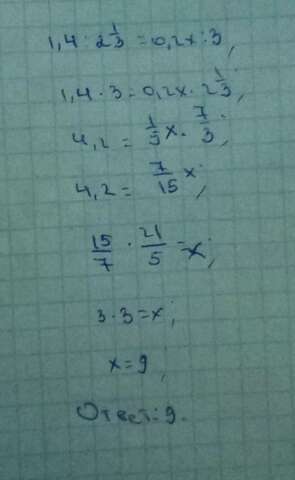 1,4 : 2 1/3 = 0,2x : 3;
1,4 · 3 = 0,2x · 2 1/3;
4,2 = 1/5 x · 7/3;
4,2 = 7/15 x;
15/7 · 21/5 = x;
3 · 3 = x;
x = 9;
Ответ: 9.